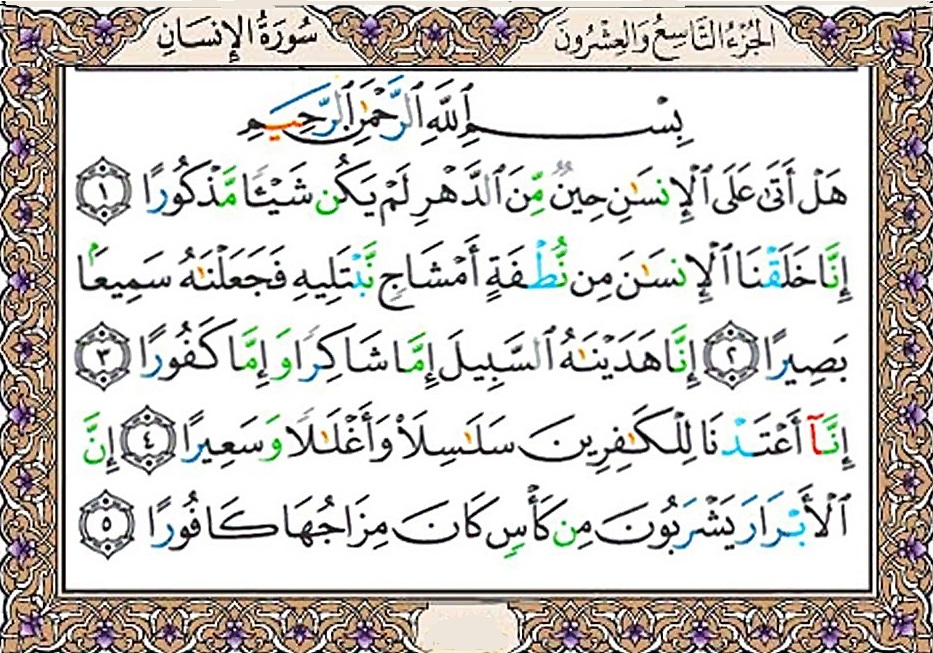 الجُزْءُ التَّاسِعُ وَالعِشْرُونَ
سُورَةُ الإِنسَانِ
بِسْمِ ٱللَّهِ ٱلرَّحْمَٰنِ ٱلرَّحِيمِ
هَلْ أَتَىٰ عَلَى ٱلْإِنسَٰنِ حِينٌ مِّنَ ٱلدَّهْرِ لَمْ يَكُن شَيْـًٔا مَّذْكُورًا ١
إِنَّا خَلَقْنَا ٱلْإِنسَٰنَ مِن نُّطْفَةٍ أَمْشَاجٍ نَّبْتَلِيهِ فَجَعَلْنَٰهُ سَمِيعًۢا
بَصِيرًا ٢ إِنَّا هَدَيْنَٰهُ ٱلسَّبِيلَ إِمَّا شَاكِرًا وَإِمَّا كَفُورًا ٣
إِنَّآ أَعْتَدْنَا لِلْكَٰفِرِينَ سَلَٰسِلَا۟ وَأَغْلَٰلًا وَسَعِيرًا ٤ إِنَّ
ٱلْأَبْرَارَ يَشْرَبُونَ مِن كَأْسٍ كَانَ مِزَاجُهَا كَافُورًا ٥